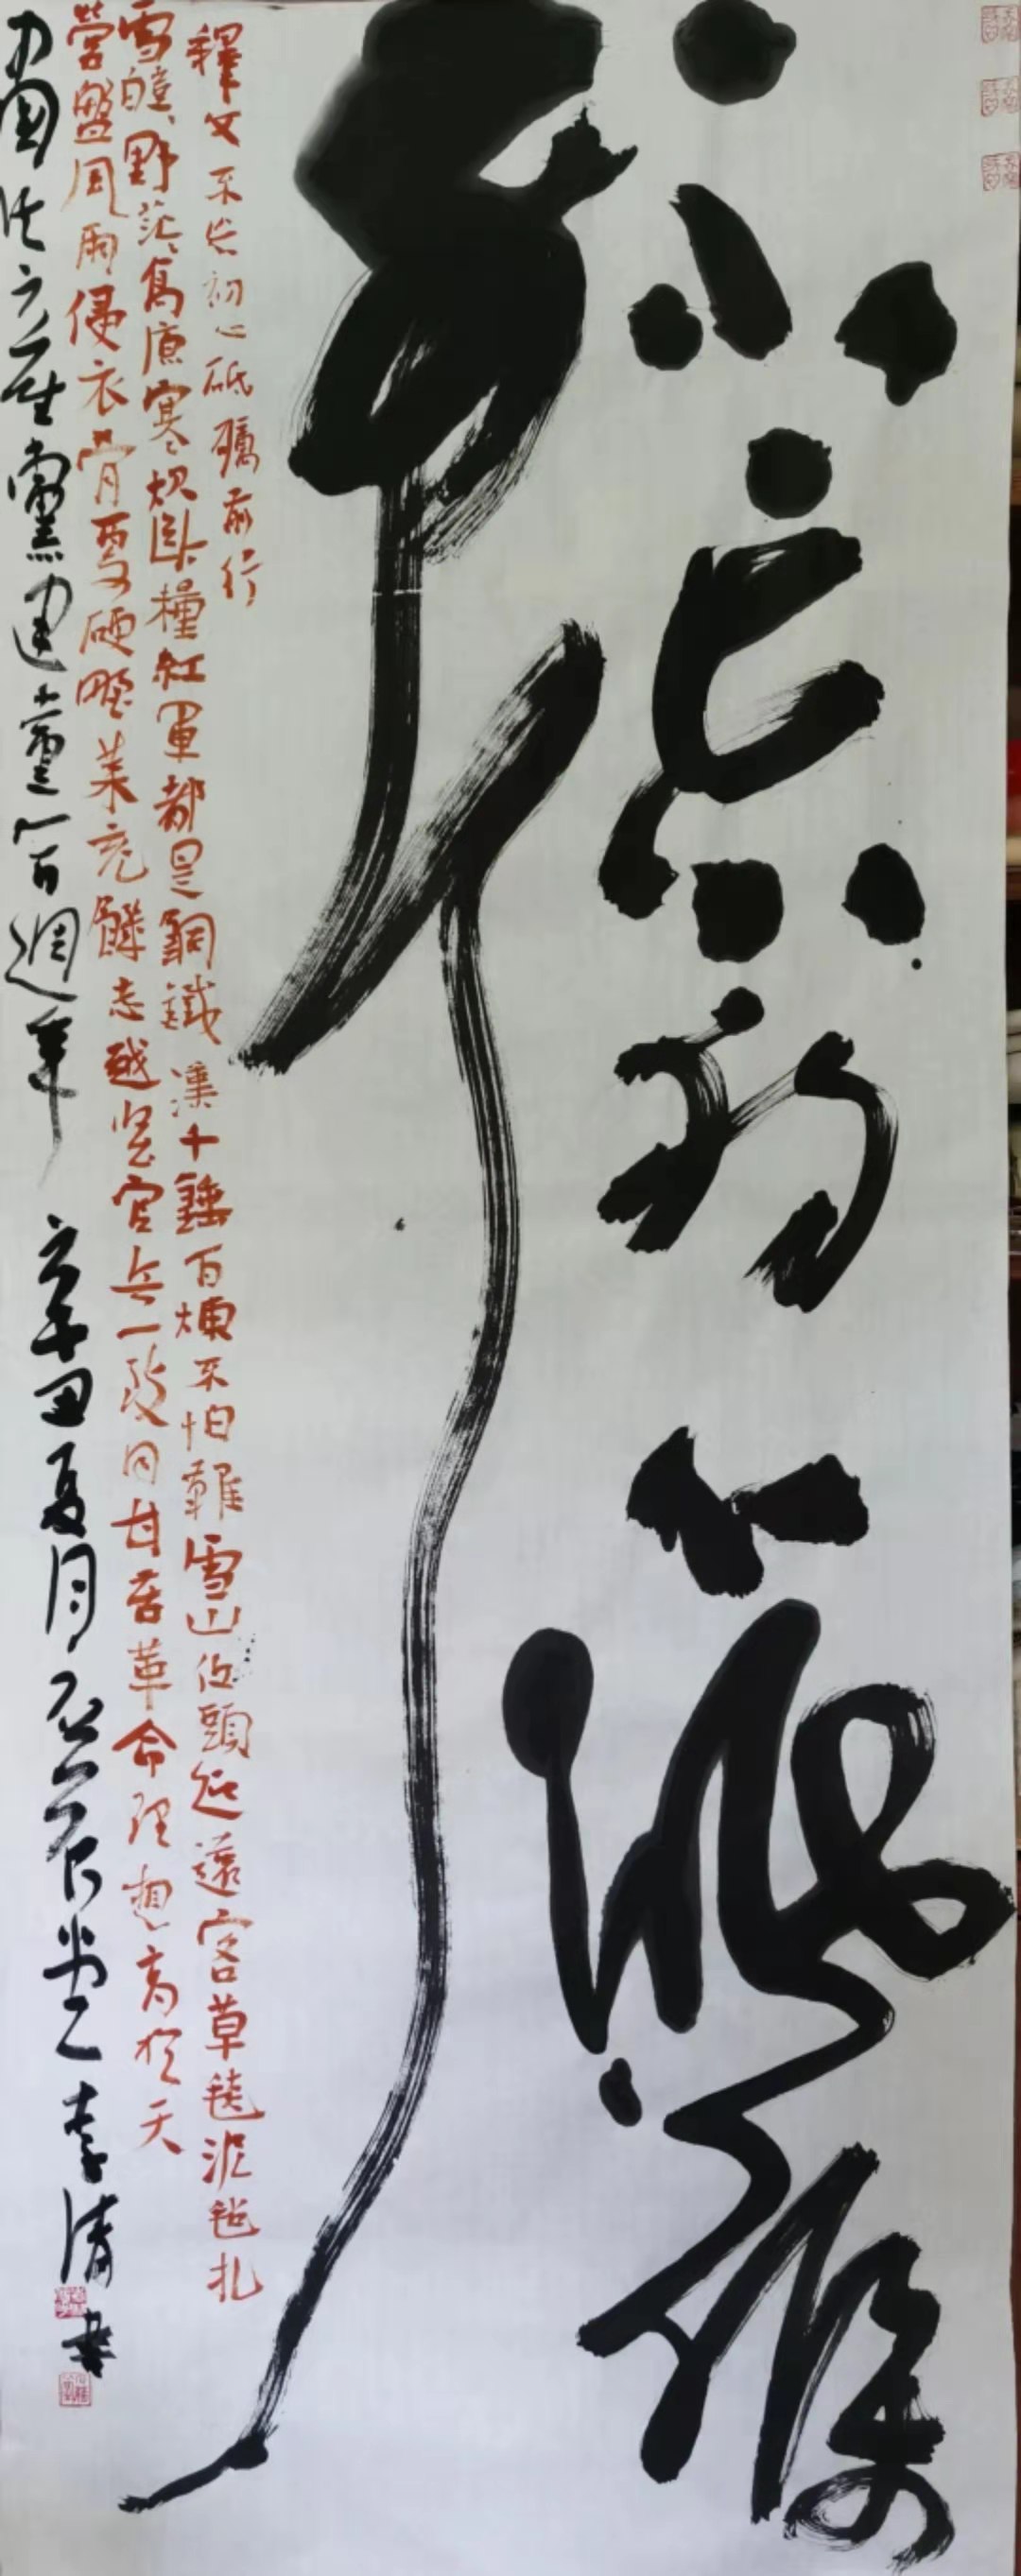 不忘初心砥礪
前行
釋文不忘初心砥礪前行
雪皚々野茫々高原寒炊斷糧紅軍都是鋼鐵漢千錘百煉不怕難雪山低頭迎遠客草毯泥氈扎
營盤風雨侵衣骨更硬野菜充饑志越堅官兵一致同甘苦革命理想高於天
產黨建黨百週年 辛丑夏月 李清書